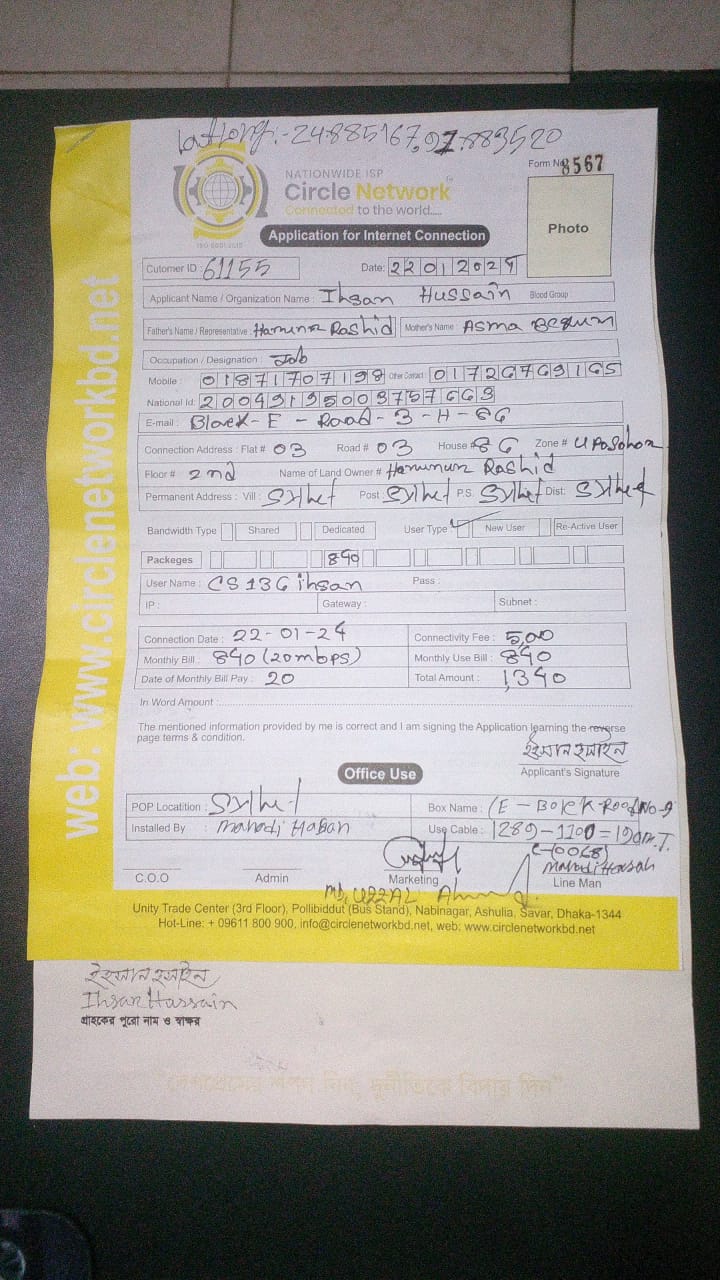 Lat long:-24.885167,91.883520
NATIONWIDE ISP
Circle Network
Connected to the world.....
ISO 9001:2015
Form No 8567
Photo
Application for Internet Connection
Cutomer ID : 61155 Date: 22012024
Applicant Name / Organization Name : Ihsan Hussain Blood Group :
Father's Name / Representative : Rashid Mother's Name : Asma Begum
Occupation / Designation : Job
Mobile : 01871707198 Other Contact : 01726769165
National Id: 20049195003757663
E-mail : Block-E-Road-3-H-86
Connection Address : Flat # 03 Road # 03 House # 86 Zone # Uposohor
Floor # 2nd Name of Land Owner # Rashid
Permanent Address : Vill : Sylhet Post : Sylhet P.S. Sylhet Dist: Sylhet
Bandwidth Type Shared Dedicated User Type : New User Re-Active User
Packeges 840
User Name : CS136ihsan Pass :
IP : Gateway : Subnet :
Connection Date : 22-01-24 Connectivity Fee : 500
Monthly Bill : 840 (20mbps) Monthly Use Bill : 840
Date of Monthly Bill Pay : 20 Total Amount : 1,340
In Word Amount :
The mentioned information provided by me is correct and I am signing the Application learning the reverse
page terms & condition.
ইহসান হুসাইন
Applicant's Signature
Office Use
POP Locatition : Sylhet Box Name : (E-Bolck Road No-9
Installed By : Mahadi Hasan Use Cable : 1289-1100=190M.T.
(-10068)
Mahadi Hasan
C.O.O Admin Marketing Line Man
MD. UZZAL Ahmed
Unity Trade Center (3rd Floor), Pollibiddut (Bus Stand), Nabinagar, Ashulia, Savar, Dhaka-1344
Hot-Line: + 09611 800 900, info@circlenetworkbd.net, web: www.circlenetworkbd.net
web: www.circlenetworkbd.net
ইহসান হুসাইন
Ihsan Hussain
গ্রাহকের পুরো নাম ও স্বাক্ষর
"দেশপ্রেমের শপথ নিন, দুর্নীতিকে বিদায় দিন"